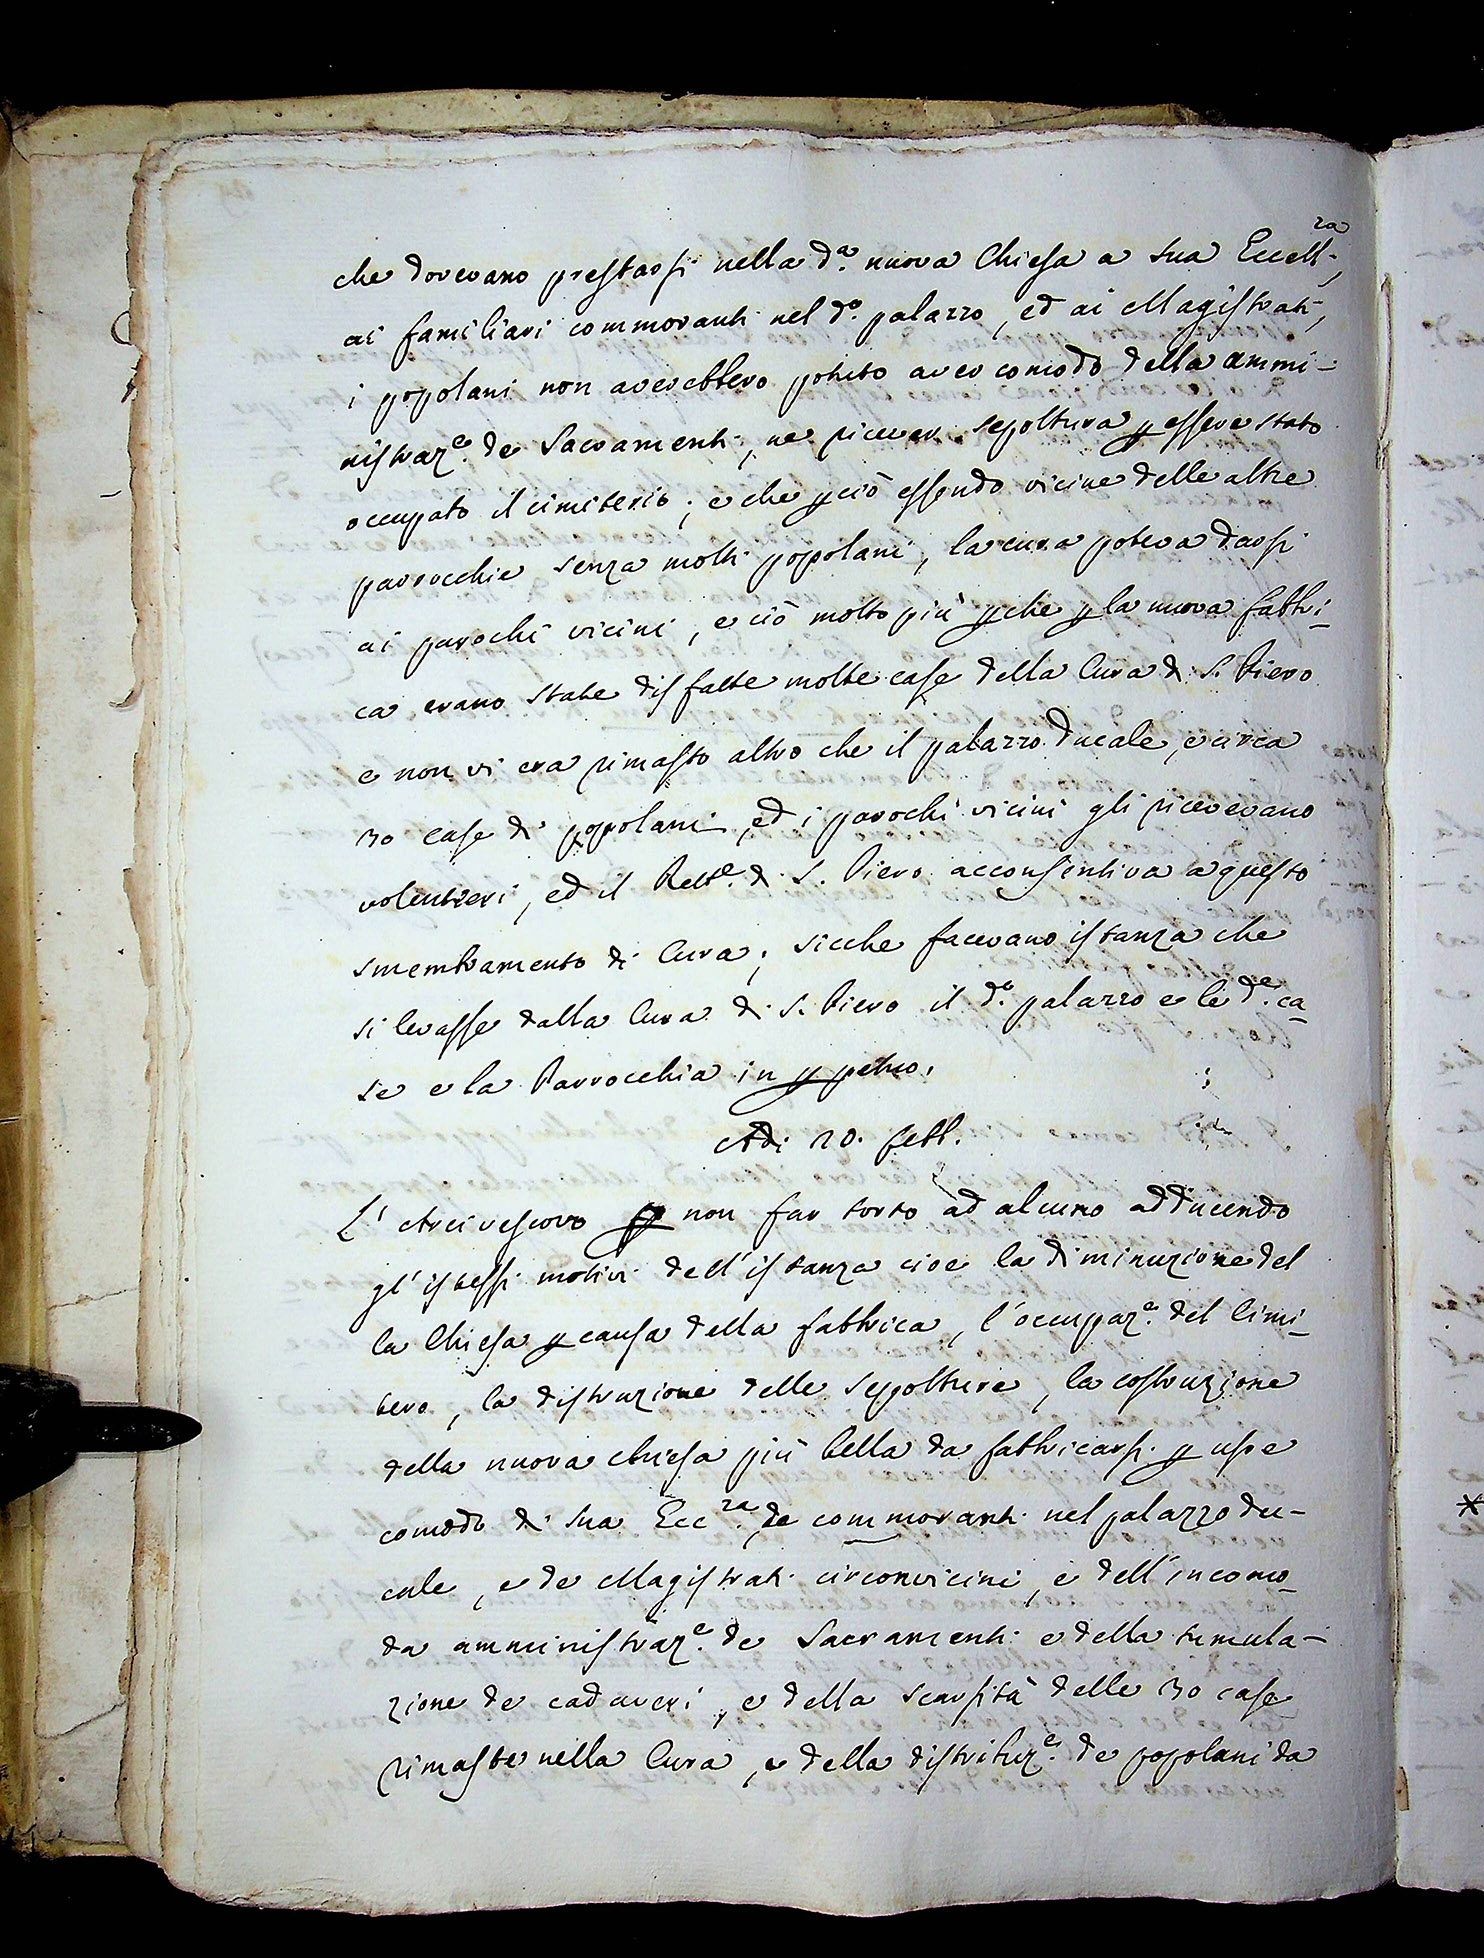 che dovevano prestarsi nella d.ª nuova Chiesa a sua Eccell.za
ai familiari commoranti nel d.º palazzo, ed ai Magistrati,
i popolani non averebbero potuto aver comodo della ammi-
nistraz.e de Sacramenti, ne ricever sepoltura p essere stato
occupato il cimiterio; e che pciò essendo vicine delle altre
parrocchie senza molti popolani, la cura poteva darsi
ai parochi vicini, e ciò molto più pche p la nuova fabbri-
ca erano state disfatte molte case della Cura di S. Piero
e non vi era rimasto altro che il palazzo Ducale, e circa
30 case di popolani, ed i parochi vicini gli ricevevano
volentieri, ed il Rett.e di S. Piero acconsentiva a questo
smembramento di Cura; sicche facevano istanza che
si levasse dalla Cura di S. Piero il d.º palazzo e le d.e ca-
se e la Parrocchia in ppetuo.
Adi 20. febb.
L'Arcivescovo p non far torto ad alcuno adducendo
gl'istessi motivi dell'istanza cioe la diminuzione del
la Chiesa p causa della fabbrica, l'occupaz.e del Cimi-
tero, la distruzione delle sepolture, la costruzione
della nuova chiesa più bella da fabbricarsi p uso e
comodo di sua Ecc.za, de commoranti nel palazzo du-
cale, e de Magistrati circonvicini, e dell'incomo-
da amministraz.e de Sacramenti e della tumula-
zione de cadaveri, e della scarsità delle 30 case
rimaste nella Cura, e della distribuz.e de popolani da